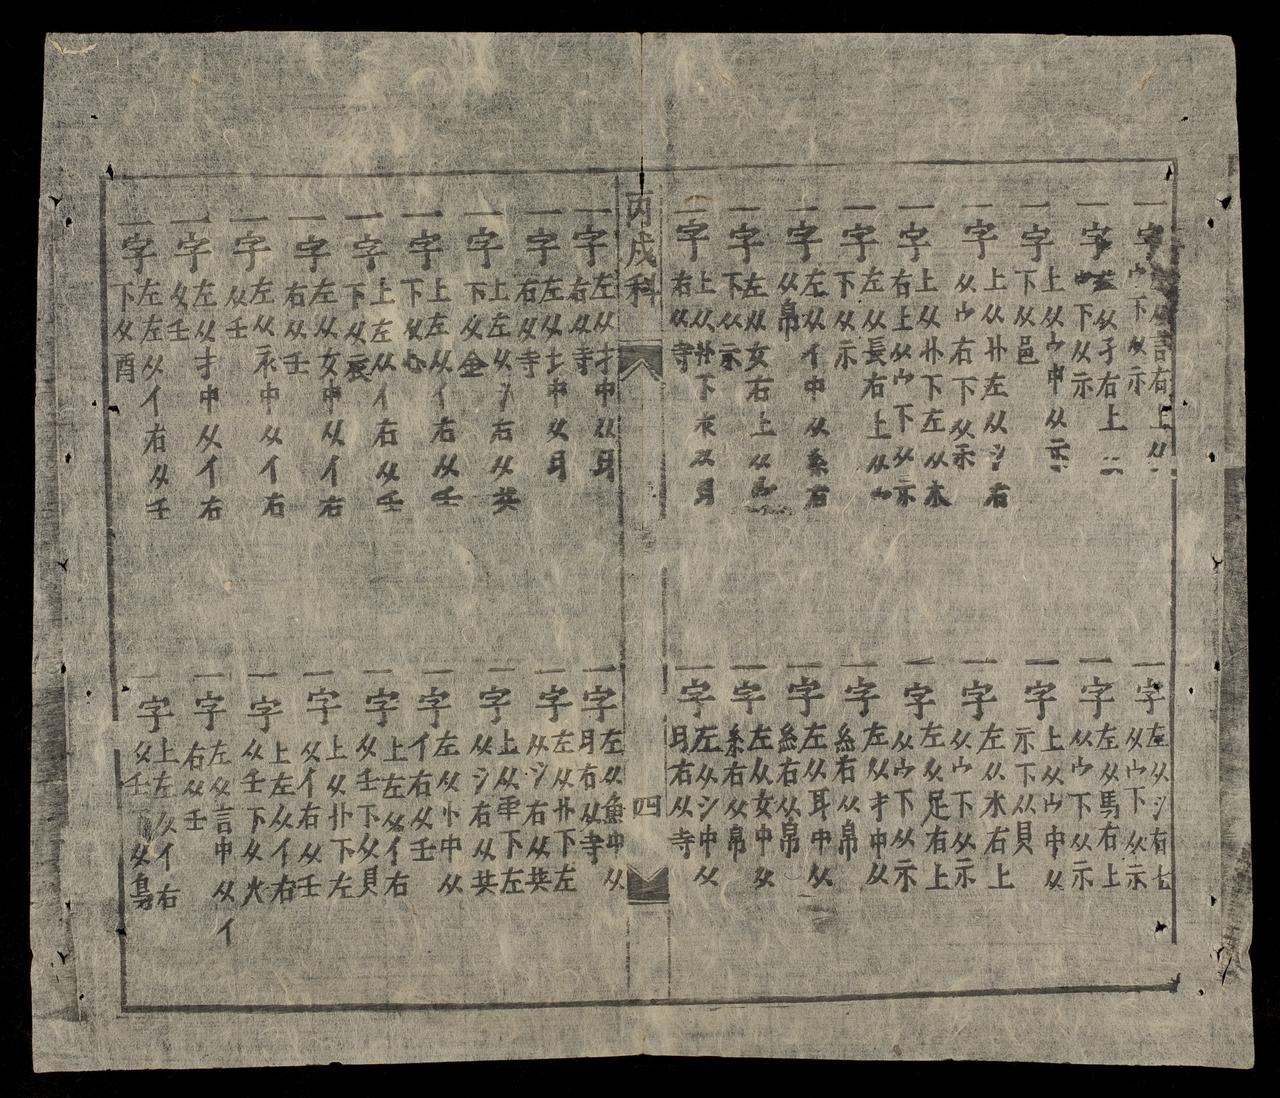 一字左从言右上从宀下从示
一字从子右上宀下从示
一字上从宀中从示下从邑
一字上从卝左从氵右从宀右下从示
一字上从卝下左从木右上从宀下从示
一字左从長右上从宀下从示
一字左从亻中从糸右从帛
一字左从女右上从下从示
一字上从卝下从貝右从寺
一字左从氵右上从宀下从示
一字左从馬右上从宀下从示
一字上从宀中从示下从貝
一字左从水右上从宀下从示
一字左从足右上从宀下从示
一字左从才中从糸右从帛
一字左从耳中从糸右从帛
一字左从女中从糸右从帛
一字左从氵中从耳右从寺
丙戌科
四
一字左从才中从耳右从寺
一字左从土中从耳右从寺
一字上左从氵右从共下从金
一字上左从亻右从壬下从心
一字上左从亻右从下从
一字左从女中从亻右右从壬
一字左从衤中从亻右从壬
一字左从才中从亻右从壬
一字左左从亻右从壬下从酉
一字左从魚中从耳右从寺
一字左从卝下左从氵右从共
一字上从雨下左从氵右从共
一字左从忄中从亻右从壬
一字上左从亻右从壬下从貝
一字上从卝下左从亻右从壬
一字上左从亻右从壬下从火
一字左从言中从亻右从壬
一字上左从亻右从壬下从